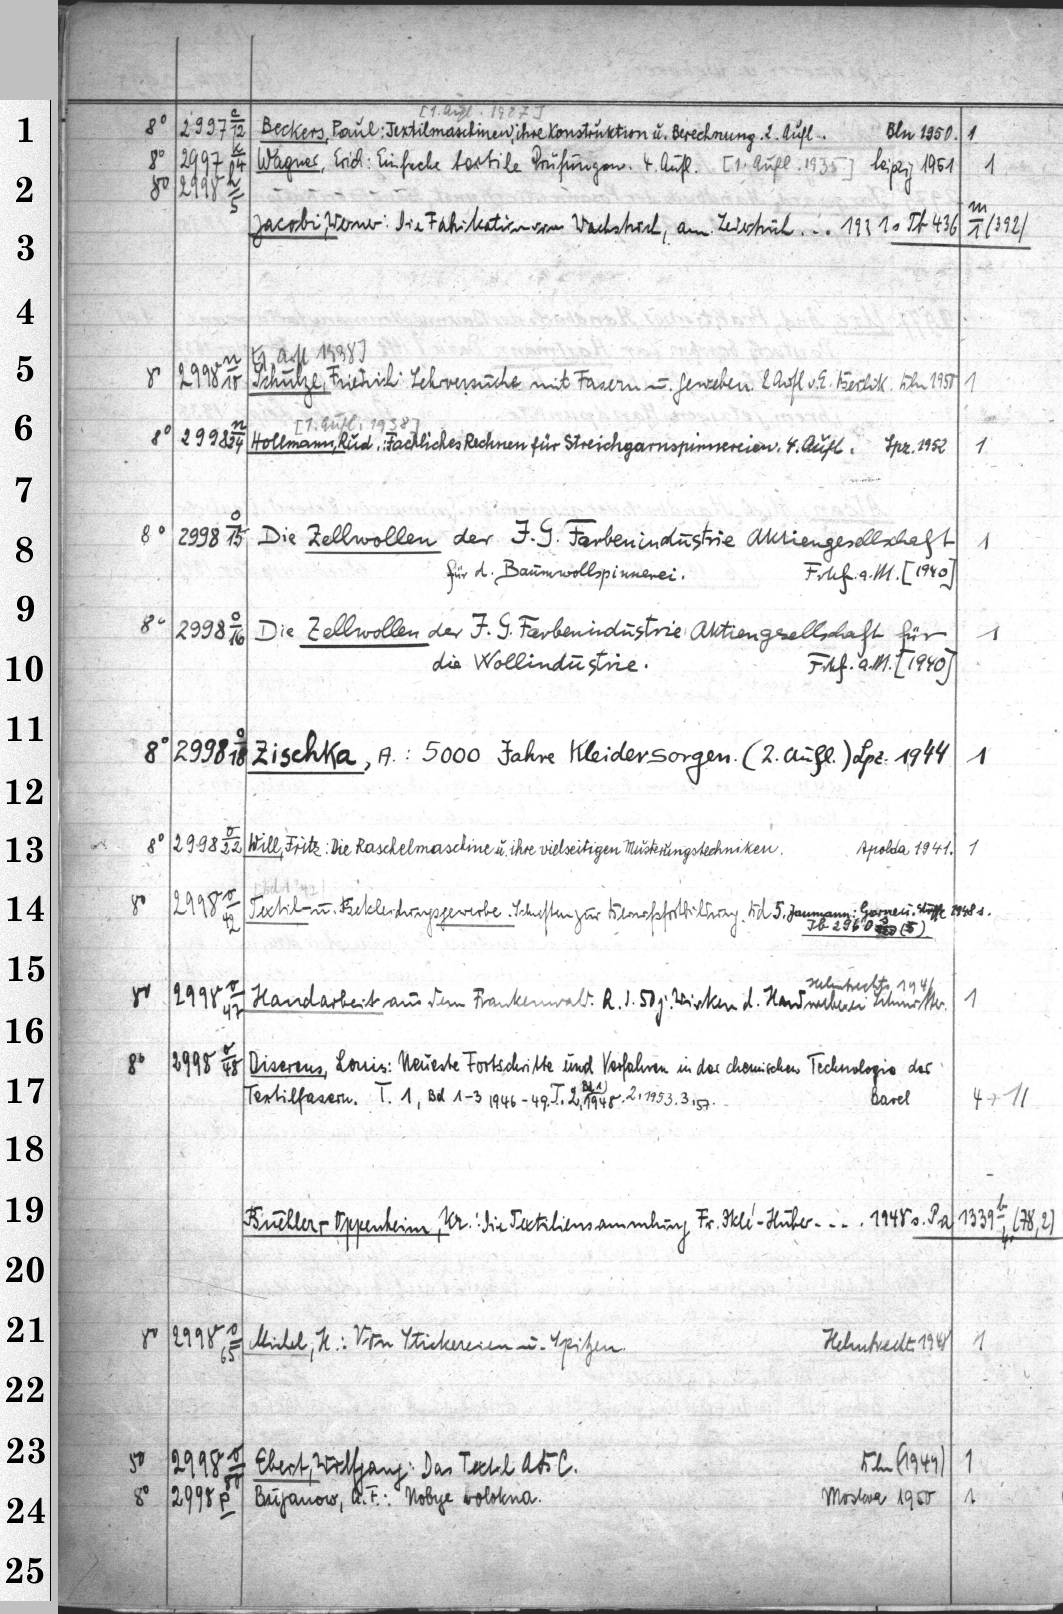 1
2
3
4
5
6
7
8
9
10
11
12
13
14
15
16
17
18
19
20
21
22
23
24
25
[1. Aufl. 1927]
8° 2997 e/12 Beckers, Paul: Textilmaschinen, ihre Konstruktion u. Berechnung. 2. Aufl. Bln 1950. 1
8° 2997 Wagner, Erich: Einfache textile Prüfungen. 4. Aufl. [1. Aufl. 1935] Leipzig 1951 1
8° 2998 n/5
Jacobi, Werner: Die Fabrikation von Wachstuch, am. Ledertuch . . . 1931 s. Tb 436 m/1 (392)
[1. Aufl. 1938]
8° 2998 n/18 Schulze, Friedrich: Lehrversuche mit Fasern u. Geweben. 2. Aufl. v. E. Bln 1955 1
[1. Aufl. 1938]
8° 2998 n/24 Hollmann, Rud.: Fachliches Rechnen für Streichgarnspinnereien. 4. Aufl. Lpz. 1952 1
8° 2998 o/15 Die Zellwollen der I. G. Farbenindustrie Aktiengesellschaft 1
für d. Baumwollspinnerei. Frkf. a. M. [1940]
8° 2998 o/16 Die Zellwollen der I. G. Farbenindustrie Aktiengesellschaft für 1
die Wollindustrie. Frkf. a. M. [1940]
8° 2998 o/18 Zischka, A.: 5000 Jahre Kleidersorgen. (2. Aufl.) Lpz. 1944 1
8° 2998 o/22 Will, Fritz: Die Raschelmaschine u. ihre vielseitigen Musterungstechniken. Apolda 1941. 1
8° 2998 o/42 Textil- u. Bekleidungsgewerbe. Schriften zur Berufsfortbildung. Bd 5. Jaumann: Garne u. Stoffe 1948 s.
Ib 2960 (5)
Helmbrechts 1941
8° 2998 o/47 Handarbeit aus dem Frankenwald. R. I. 50 j. Wirken d. 1
8° 2998 o/48 Diserens, Louis: Neueste Fortschritte und Verfahren in der chemischen Technologie der
Textilfasern. T. 1, Bd 1-3 1946-49. T. 2, Bd 1) 1948. 2, 1953. 3, 57. Basel 4 + 1
Buehler-Oppenheim, Kr.: Die Textiliensammlung Fr. Iklé-Huber - - . . 1948 s. Pa 1339 b/4 (78,2)
8° 2998 o/65 Michel, H.: Von Stickereien u. Spitzen. Helmbrecht 1948 1
8° 2998 o/80 Ebert, Wolfgang: Das Textil ABC. Bln (1949) 1
8° 2998 p Bujanow, A. F.: Nobye wolokna. Moskva 1950 1